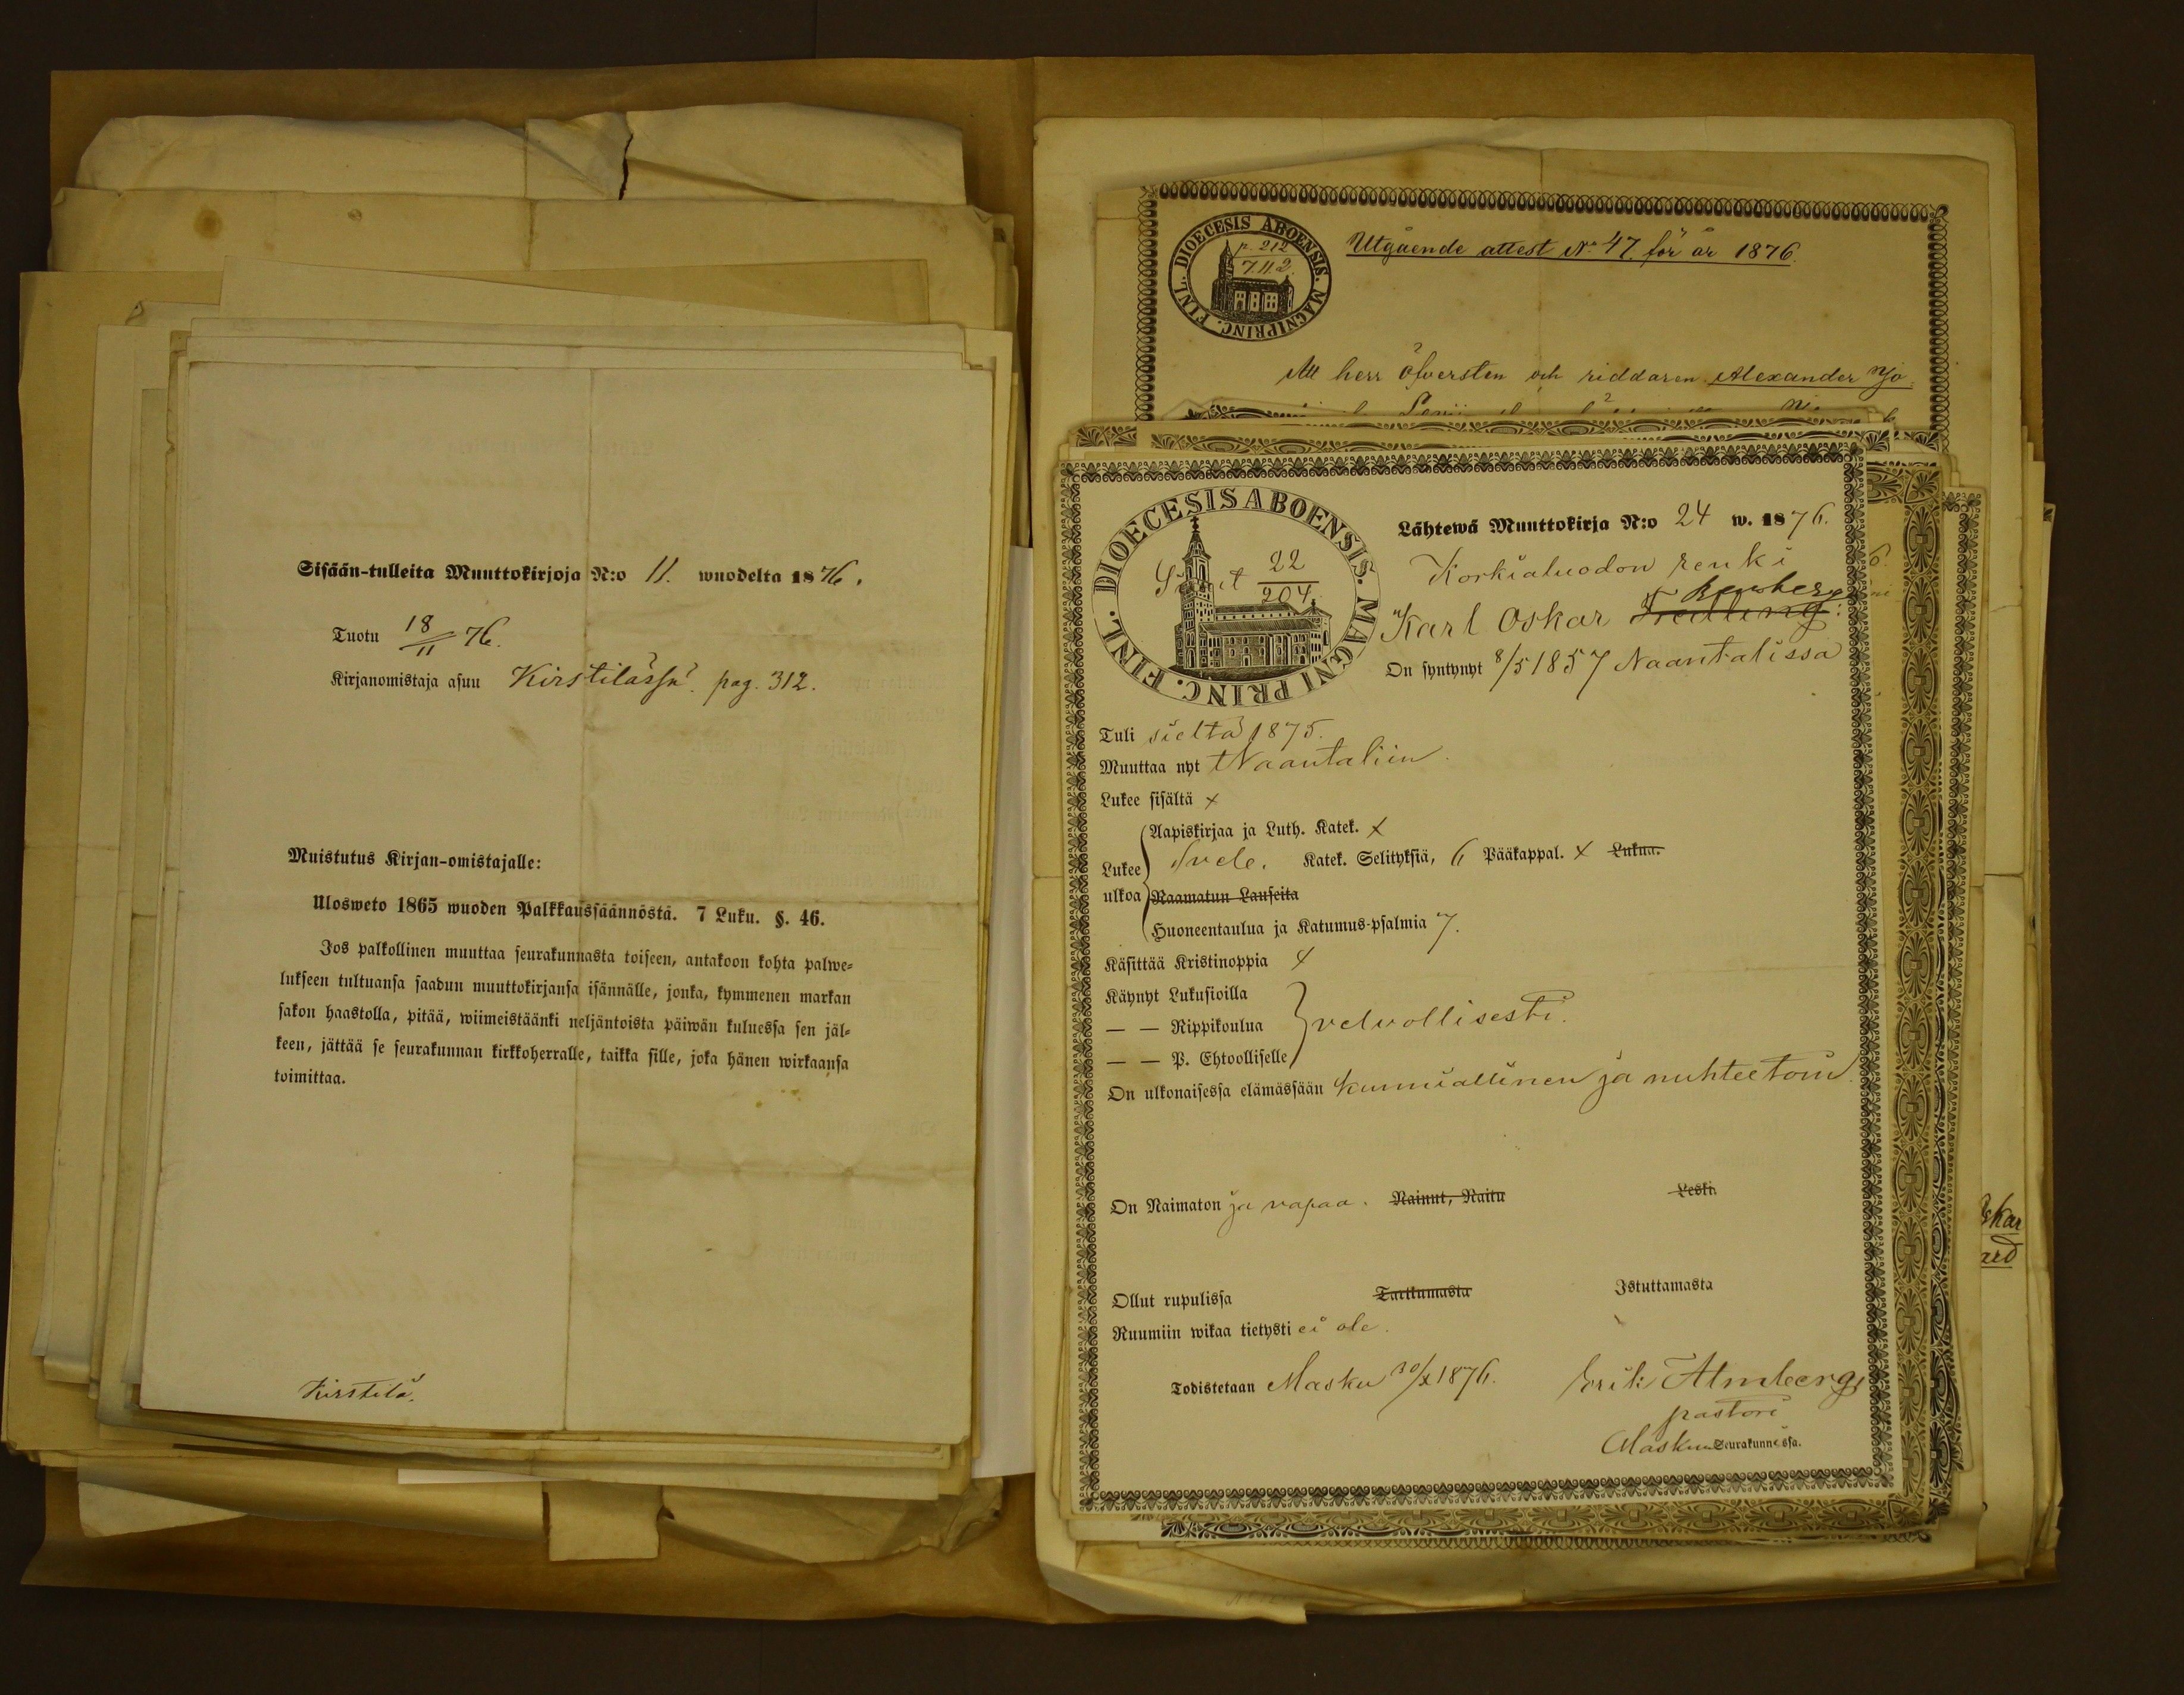 Sisään-tulleita Muuttokirjoja N:o 11. wuodelta 1876.
Tuotu 18/11 76.
Kirjanomistaja asuu Kirstilässä. pag. 312.
Muistutus Kirjan-omistajalle:
Ulosweto 1865 wuoden Palkkaussäännöstä. 7 Luku. §. 46.
Jos palkollinen muuttaa seurakunnasta toiseen, antakoon kohta palwe=
lukseen tultuansa saadun muuttokirjansa isännälle, jonka, kymmenen markan
sakon haastolla, pitää, wiimeistäänki neljäntoista päiwän kuluessa sen jäl=
keen, jättää se seurakunnan kirkkoherralle, taikka sille, joka hänen wirkaansa
toimittaa.
Kirstilä.
FINL. DIOECESIS ABOENSIS. MAGNI PRINC.
p. 212
7.11.2.
Utgående attest No 47. för år 1876.
Att herr öfversten och riddaren Alexander
FINL. DIOECESIS ABOENSIS. MAGNI PRINC.
22
204.
Lähtewä Muuttokirja N:o 24 w. 1876.
Korkialuodon renki
Karl Oskar
On syntynyt 8/5 1857 Naantalissa
Tuli sieltä 1875.
Muuttaa nyt Naantaliin.
Lukee sisältä x
Aapiskirjaa ja Luth. Katek. x
Lukee Svele. Katek. Selityksiä, 6 Pääkappal. x Lukua.
ulkoa Raamatun Lauseita
Huoneentaulua ja Katumus-psalmia 7.
Käsittää Kristinoppia x
Käynyt Lukusioilla
— — Rippikoulua velvollisesti.
— — P. Ehtoolliselle
On ulkonaisessa elämässään kunniallinen ja nuhteetoin.
On Naimaton ja vapaa. Nainut, Naitu Leski.
Ollut rupulissa Tarttumasta Istuttamasta
Ruumiin wikaa tietysti ei ole.
Todistetaan Masku 30/x 1876. Erik Almberg
pastori
Maskun Seurakunnassa.
skar